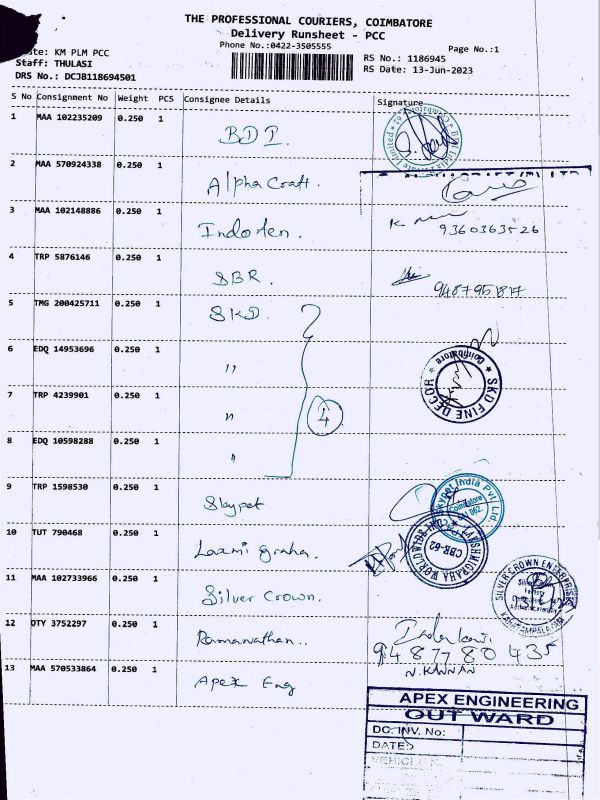 THE PROFESSIONAL COURIERS, COIMBATORE
Delivery Runsheet - PCC
Phone No.:0422-3505555
Page No.:1
KM PLM PCC
RS No.: 1186945
Staff: THULASI
RS Date: 13-Jun-2023
DRS No.: DCJB118694501
S No Consignment No Weight PCS Consignee Details Signature
1 MAA 102235209 0.250 1 BDI.
2 MAA 570924338 0.250 1 Alpha Craft.
3 MAA 102148886 0.250 1 Indoten. 9360363526
4 TRP 5876146 0.250 1 SBR. 9487951817
5 TMG 200425711 0.250 1 SKD.
6 EDQ 14953696 0.250 1 "
SKD FINE DECOR * Coimbatore *
7 TRP 4239901 0.250 1 " 4
8 EDQ 10598288 0.250 1 "
9 TRP 1598530 0.250 1 Skypet
Skypet India Pvt. Ltd.
Coimbatore
10 TUT 790468 0.250 1 Laxmi graha.
CBE-62
11 MAA 102733966 0.250 1 Silver Crown.
SILVER CROWN ENTERPRISES
12 QTY 3752297 0.250 1 Ramanathan..
9487780435
N. KANNAN
13 MAA 570533864 0.250 1 Apex Eng
APEX ENGINEERING
OUT WARD
DC. INV. No:
DATED
VEHICLE